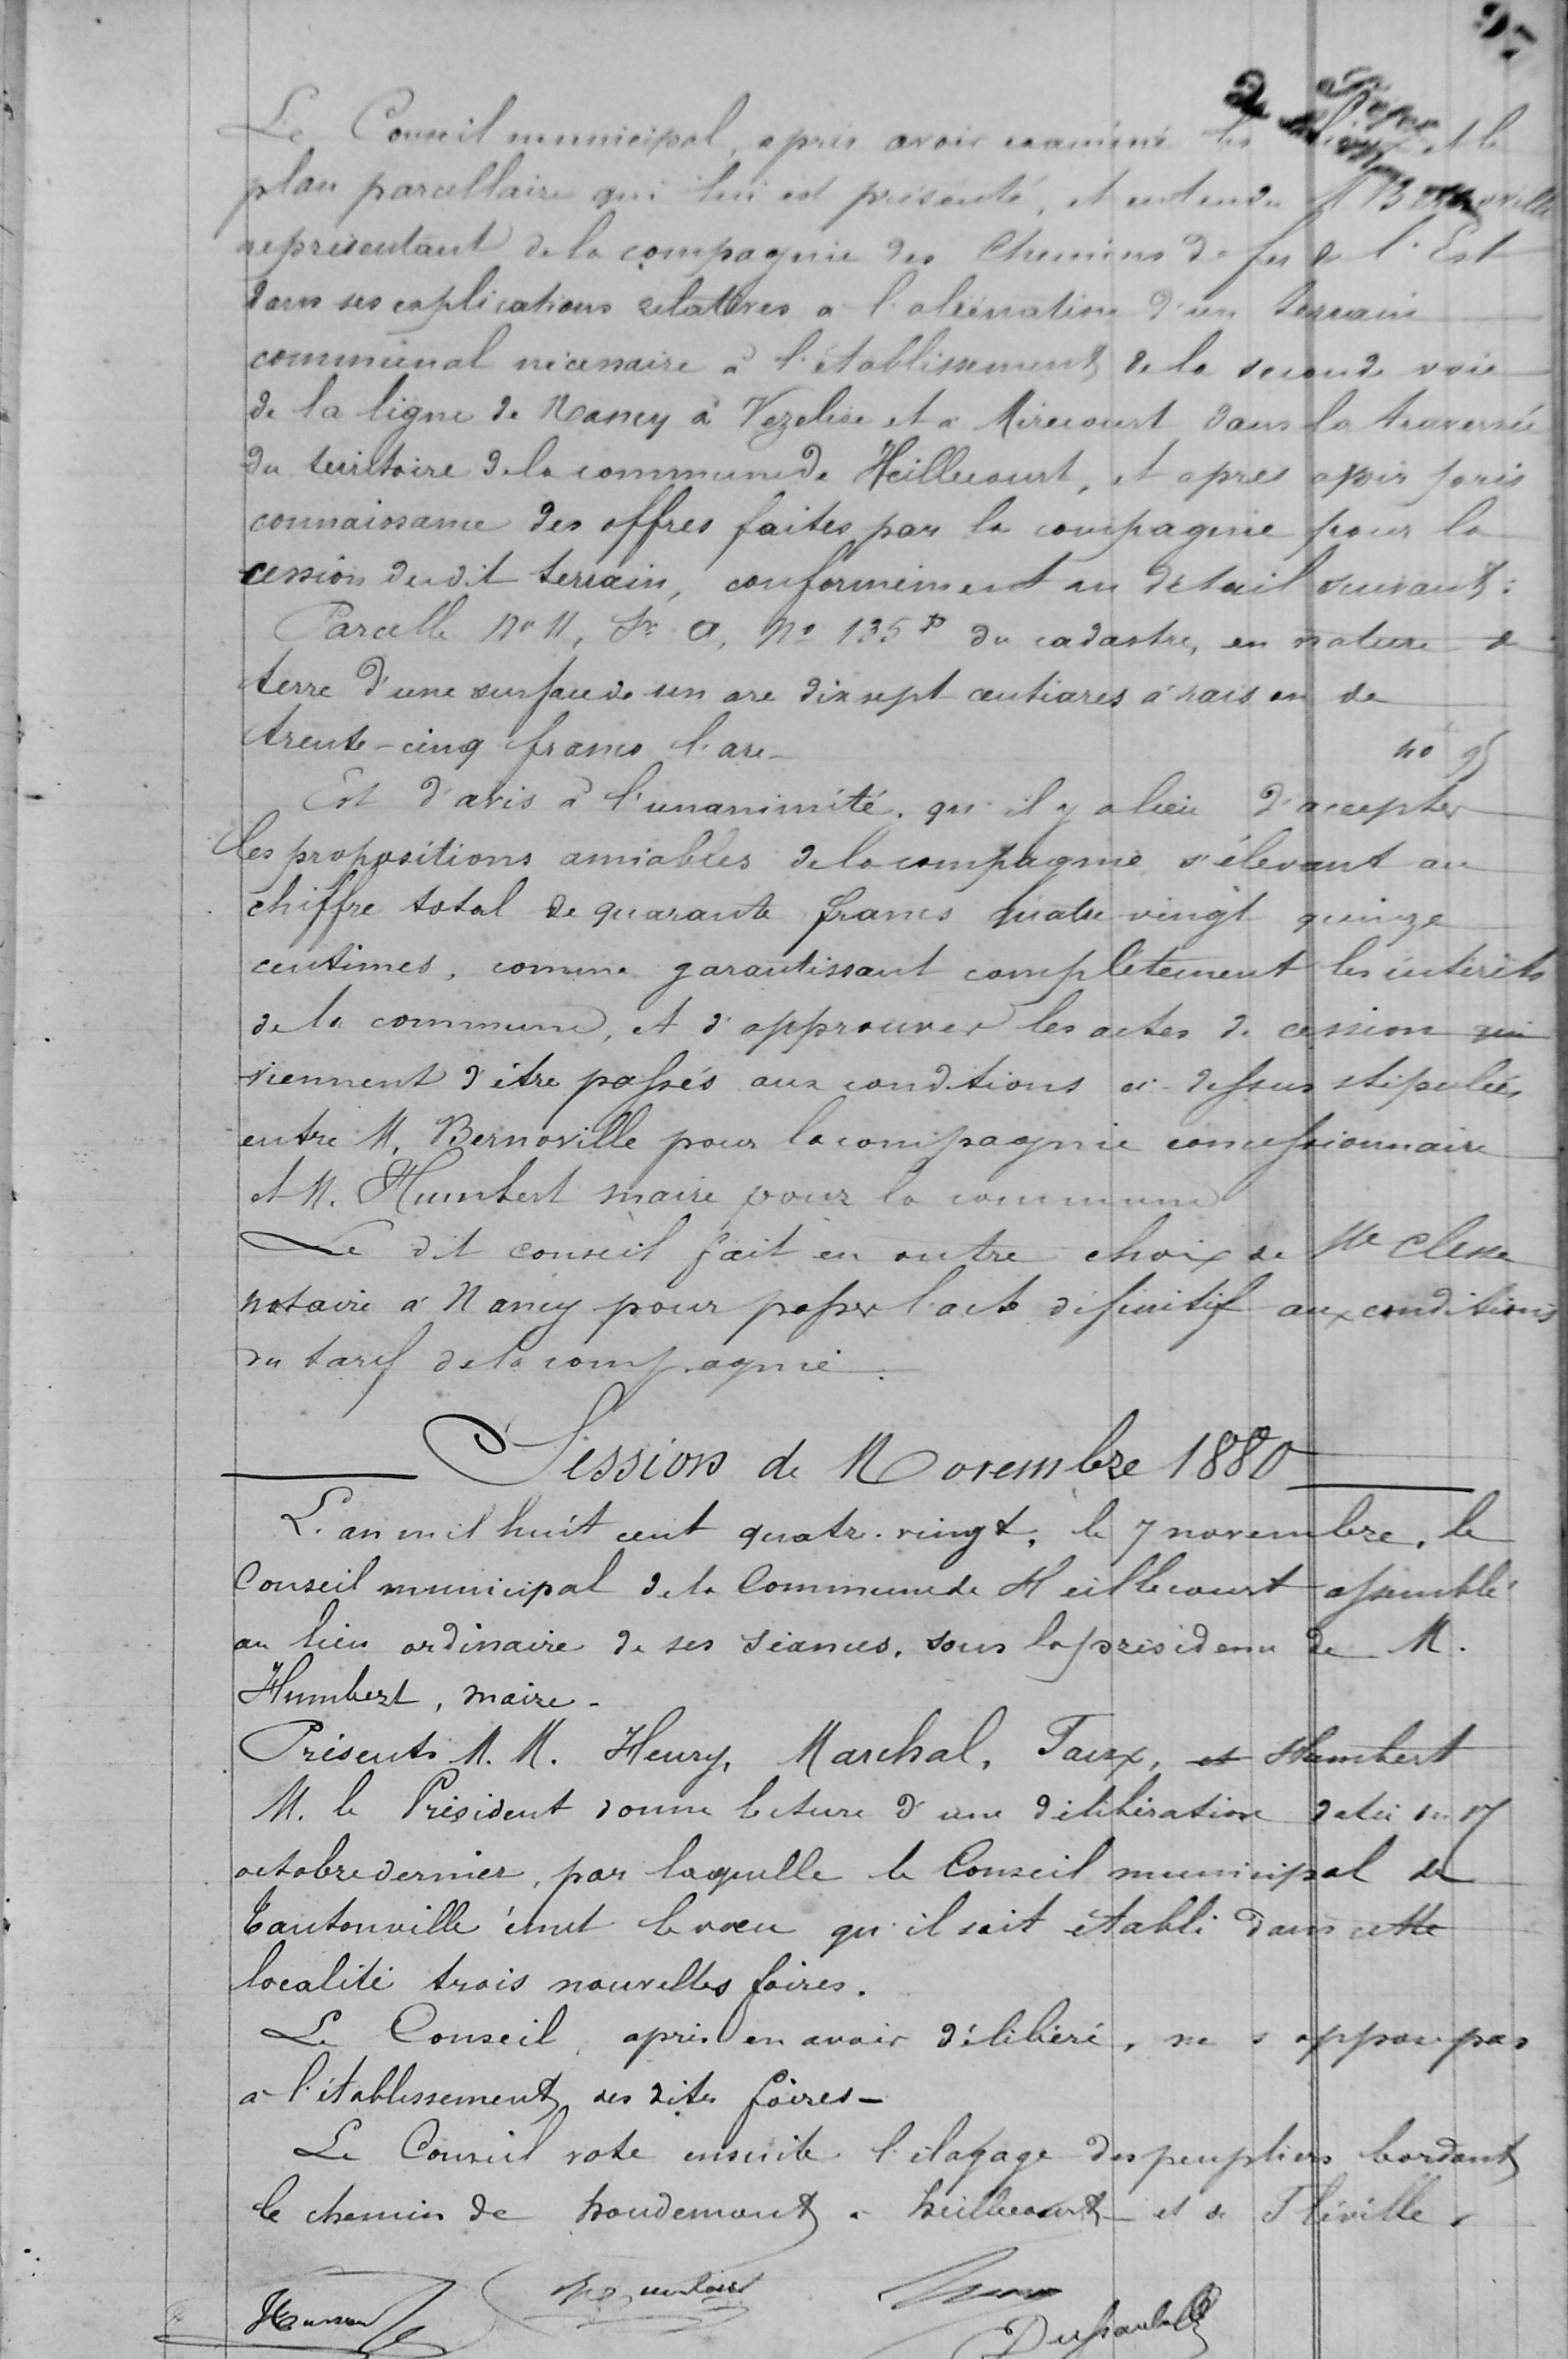 97
Le Conseil municipal, après avoir examiné les et le
plan parcellaire qui lui est présenté, et entendu M Bernoville
représentant de la compagnie des Chemins de fer de l'Est
dans ses explications relatives a l'aliénation d'un terrain
communal nécessaire à l'établissement de la seconde voie
de la ligne de Nancy à Vezelise et a Mirecourt dans la traversée
du territoire de la commune de Heillecourt, et apres avoir pris
connaissance des offres faites par la compagnie pour la
cession dudit terrain, conformément au détail suivant :
Parcelle No 11, Son A, No 135p du cadastre, en nature de
terre d'une surface de un are dix sept centiares à raison de
trente-cinq francs l'are - 40 95
Est d'avis à l'unanimité, qu'il y a lieu d'accepter
les propositions amiables de la compagnie s'élevant au
chiffre total de quarante francs quatre vingt quinze
centimes, comme garantissant complètement les intérêts
de la commune, et d'approuver les actes de cession qui
viennent d'être passés aux conditions ci-dessus stipulées
entre M. Bernoville pour la compagnie concessionnaire
et M. Humbert maire pour la commune
Le dit conseil fait en outre choix de Me Clesse
notaire à Nancy pour passer l'acte définitif aux conditions
du tarif de la compagnie.
Session de Novembre 1880
L'an mil huit cent quatre-vingt, le 7 novembre, le
Conseil municipal de la Commune de Heillecourt assemblé
au lieu ordinaire de ses séances, sous la présidence de M.
Humbert, maire -
Présents M. M. Henry, Marchal, Faux, et Humbert
M. le Président donne lecture d'une délibération datée du 17
octobre dernier, par laquelle le Conseil municipal de
Tantonville émet le voeu qu'il soit établi dans cette
localité trois nouvelles foires.
Le Conseil, après en avoir délibéré, ne s'oppose pas
a l'établissement des dites foires -
Le Conseil vote ensuite l'élagage des peupliers bordant
le chemin de houdemont a heillecourt et de Fléville.